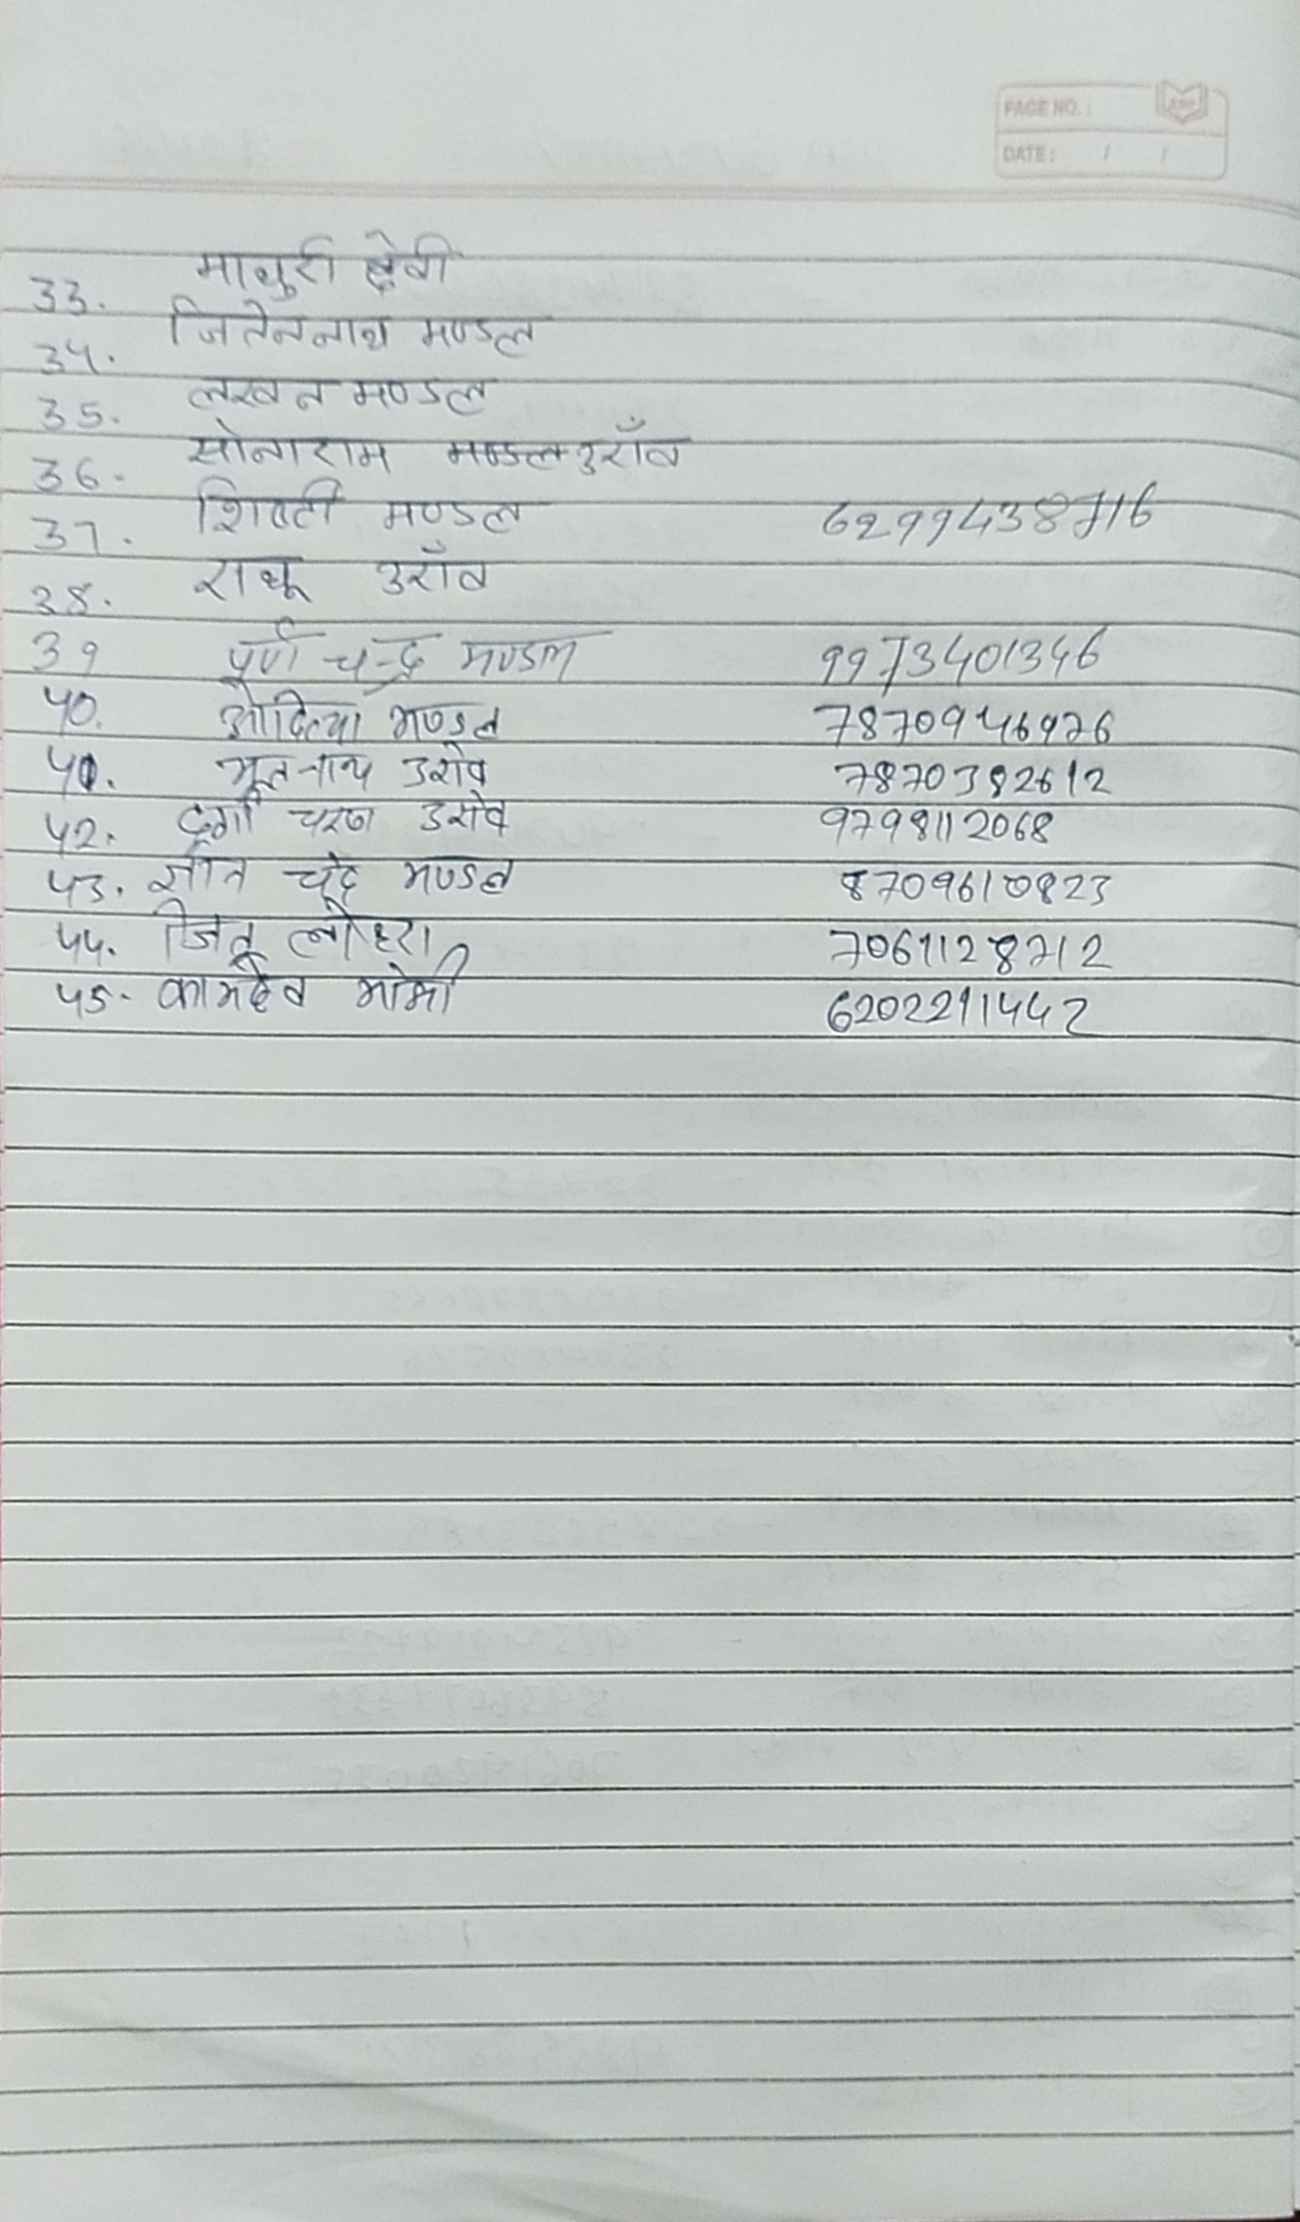 PAGE NO. :
DATE: / /
33. माधुरी देवी
34. जितेननाथ मण्डल
35. लखन मण्डल
36. सोनाराम उराँव
37. मण्डल 6299438716
38. राधू उराँव
39 पूर्ण चन्द्र मण्डल 9973401346
40. ओदित्या मण्डल 7870946976
41. भूतनाथ उराँव 7870382612
42. दुर्गा चरण उराँव 9798112068
43. चंद्र मण्डल 8709610823
44. जितू लोहरा 7061128712
45. कामदेव 6202211442